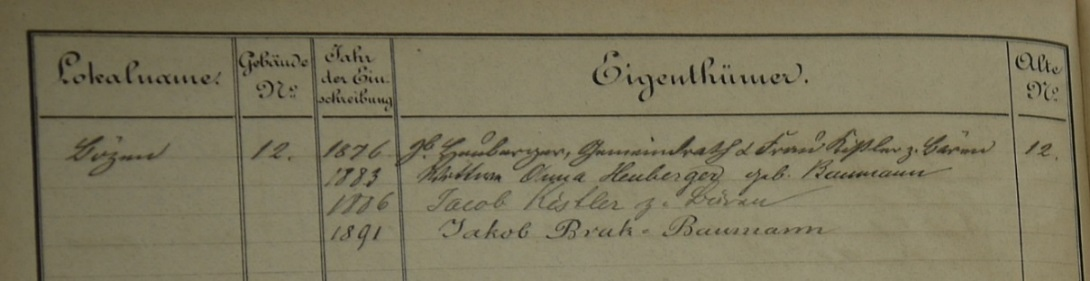 Lokalname. Gebäude No. Jahr der Einschreibung Eigenthümer. Alte No.
Bözen 12. 1876 Jb. Heuberger, Gemeindrath & Frau Kistler z. Bären 12.
1883 Wittwe Anna Heuberger geb. Baumann
1886 Jacob Kistler z. Bären
1891 Jakob Bruk-Baumann